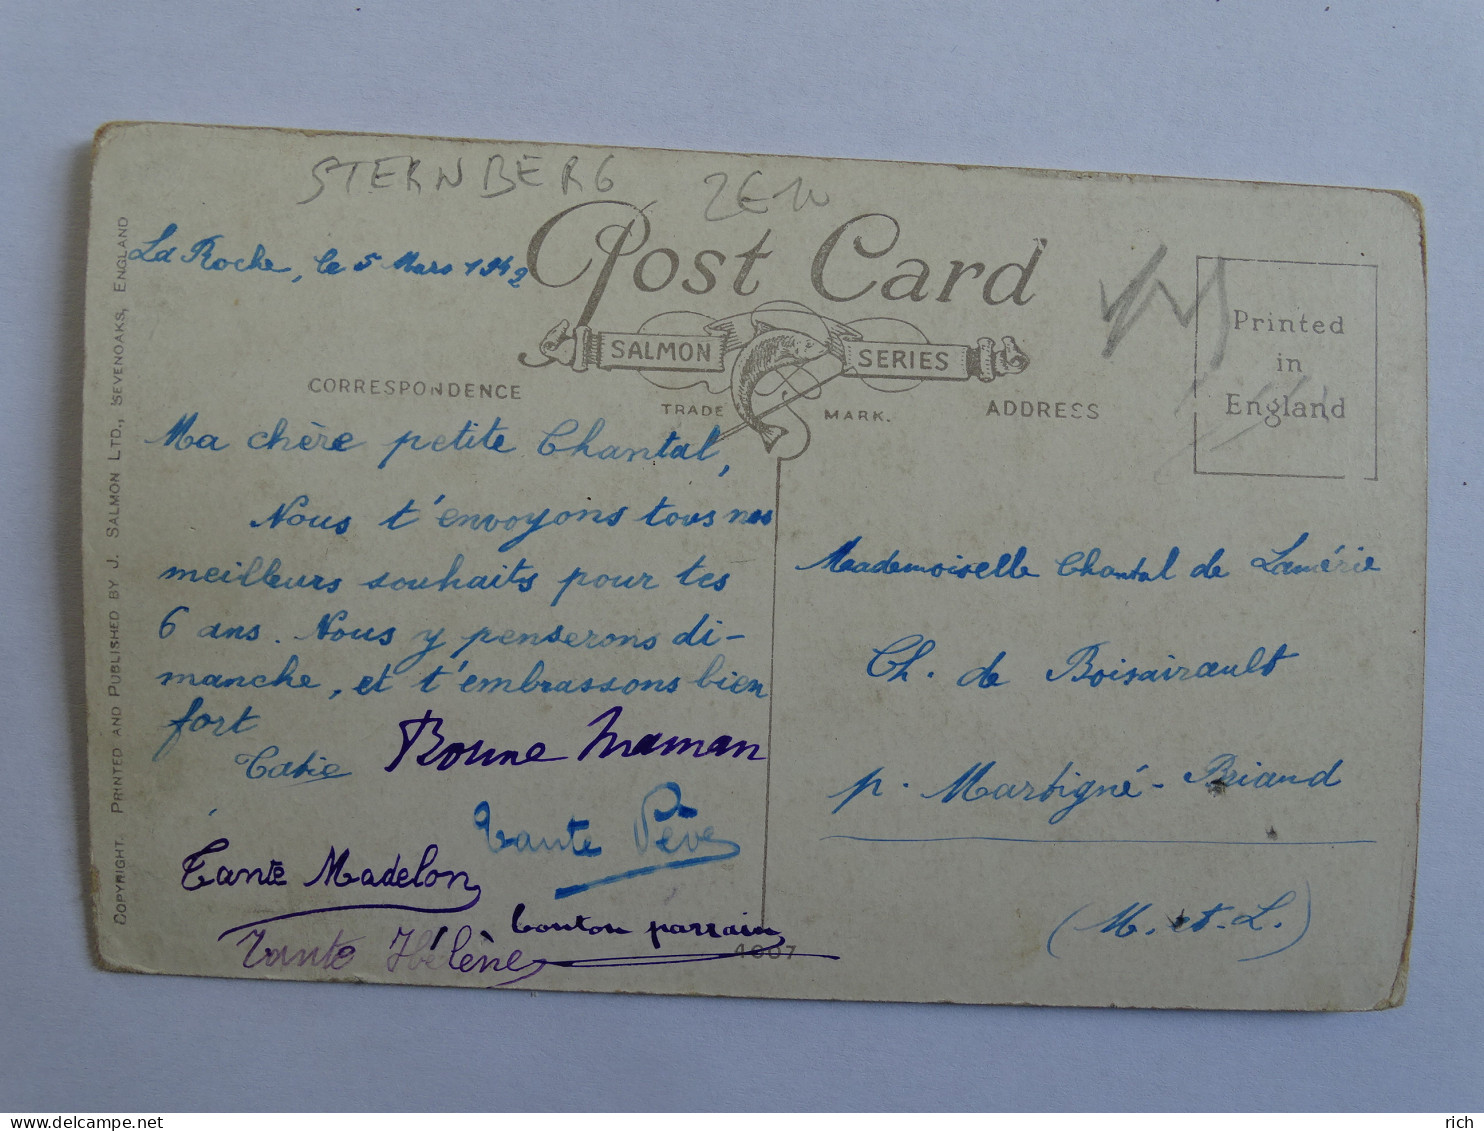 STERNBERG
La Roche, le 5 Mars 1942
Post Card
SALMON SERIES
TRADE MARK.
CORRESPONDENCE
ADDRESS
Printed
in
England
Ma chère petite Chantal,
Nous t'envoyons tous nos
meilleurs souhaits pour tes
6 ans. Nous y penserons di-
manche, et t'embrassons bien
fort
Bonne Maman
Tante
Tante Madelon
tonton parrain
Tante Hélène
Mademoiselle Chantal de Lamérie
Ch. de Boisairault
p. Martigné-Briand
(M. et-L.)
COPYRIGHT. PRINTED AND PUBLISHED BY J. SALMON LTD., SEVENOAKS, ENGLAND
delcampe.net
rich